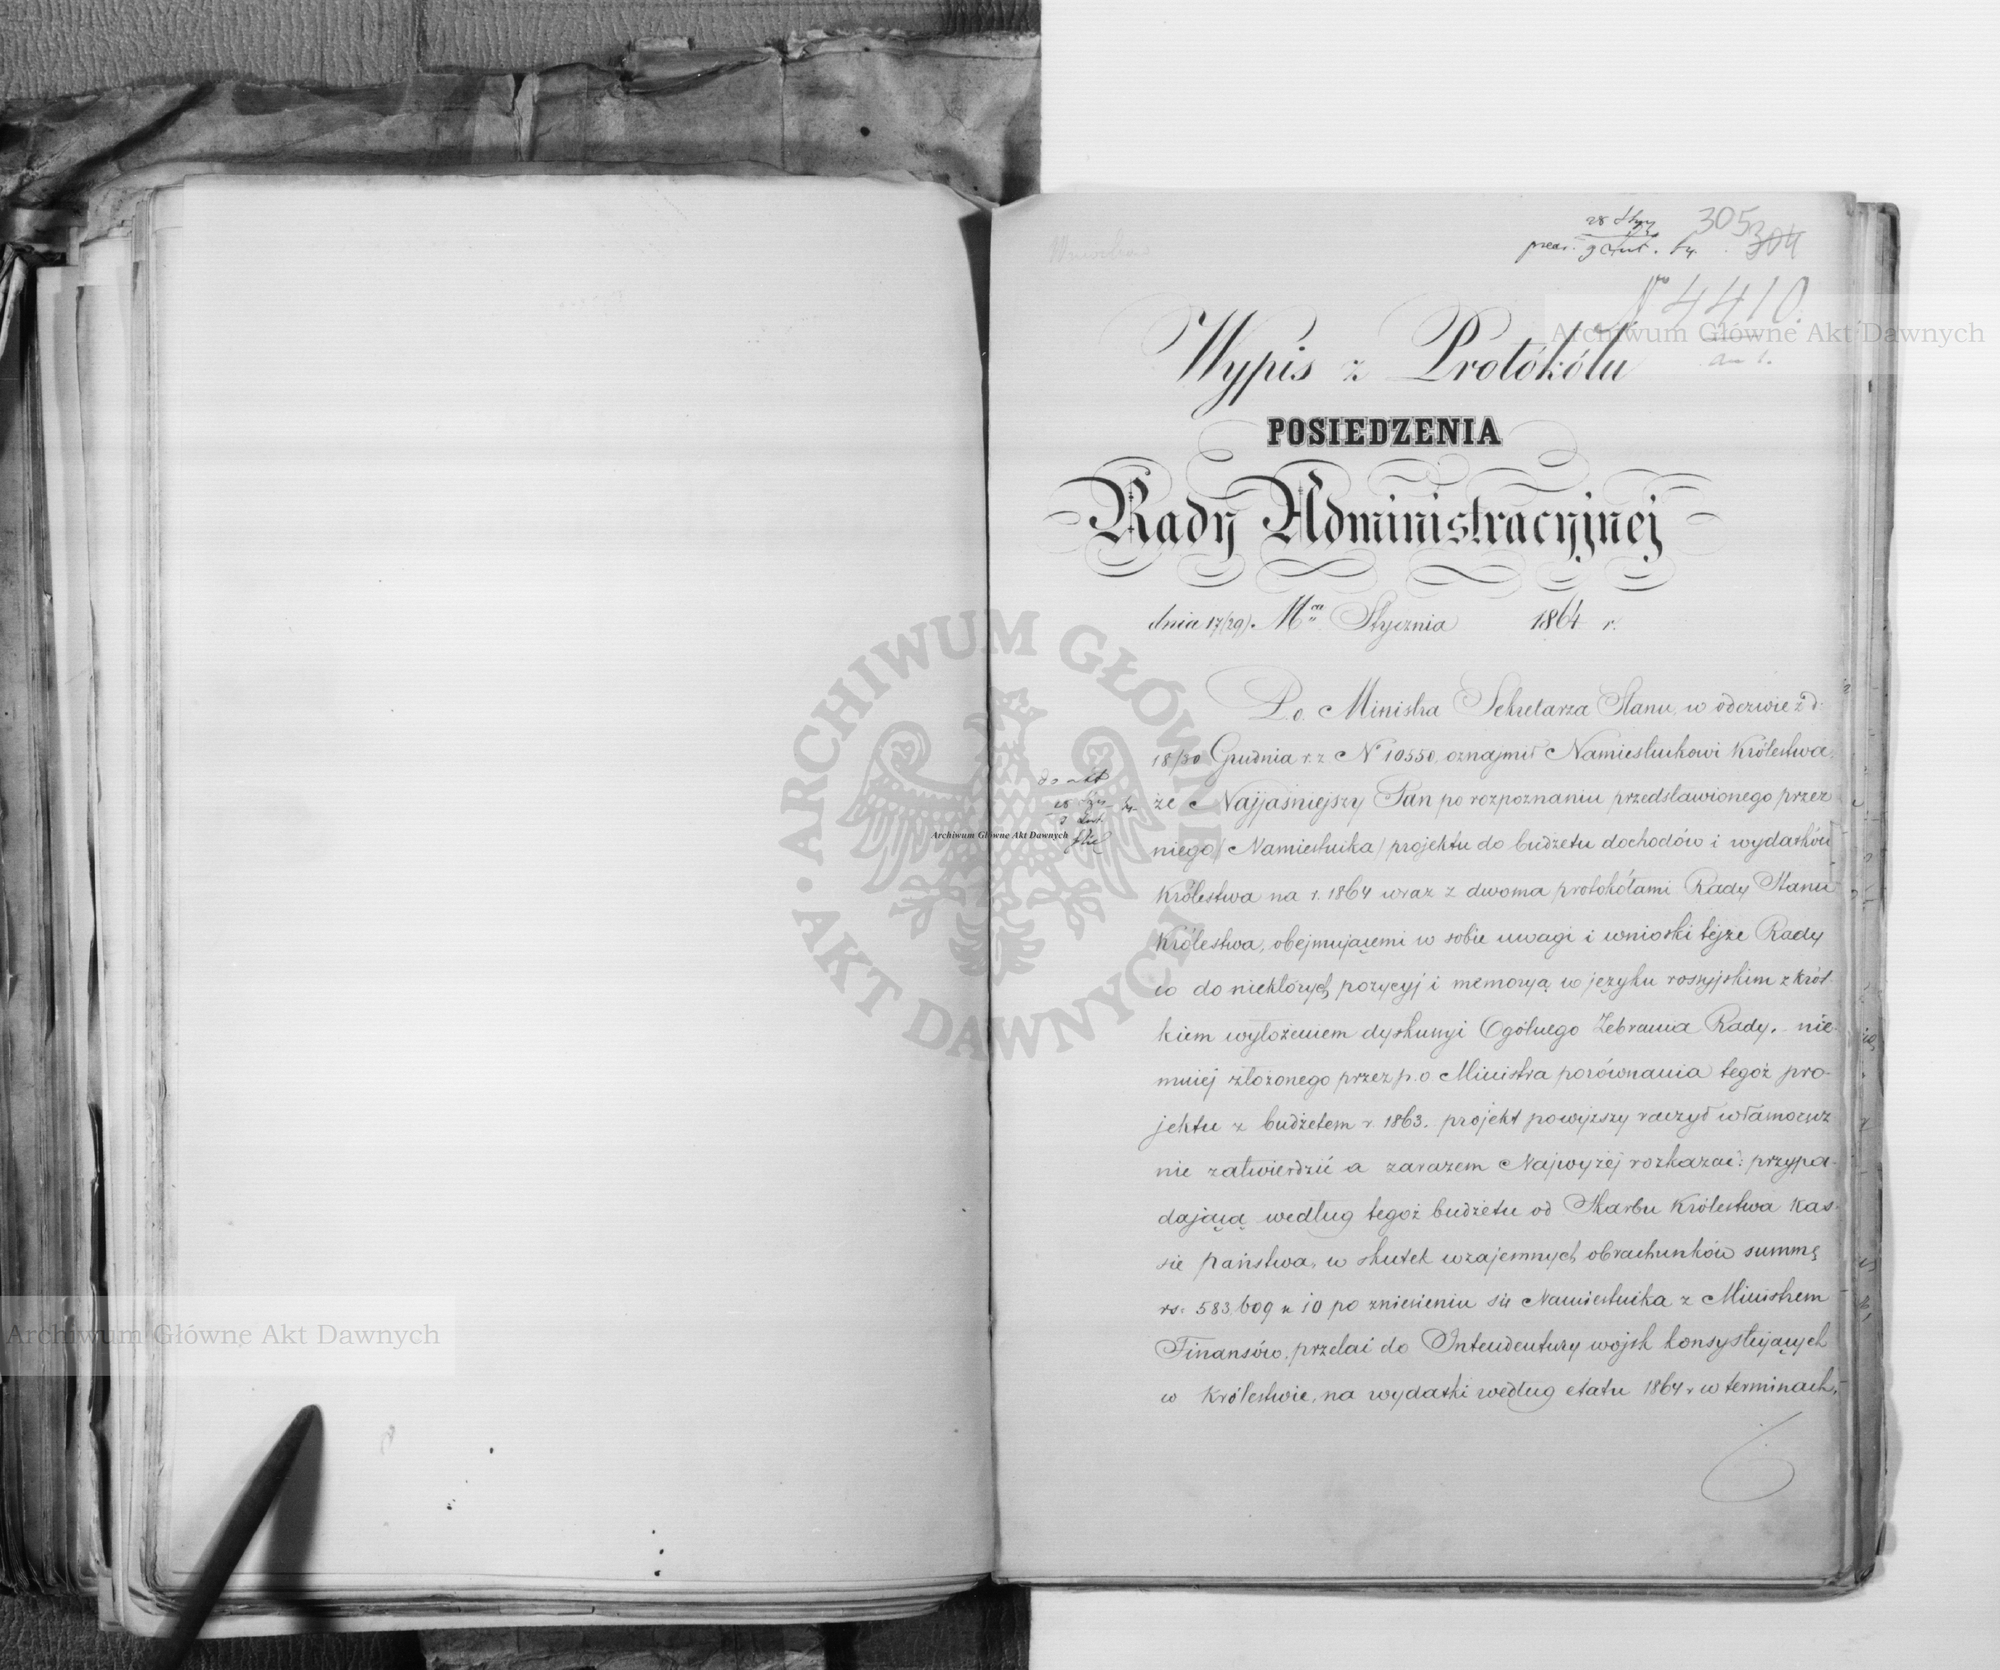 28 Stycz
305 304
prez. 9 Lut. 64.
N° 4410.
Wypis z Protókólu
POSIEDZENIA
Rady Administracyjnej
dnia 17/29. Mca Stycznia 1864 r.
P. o. Ministra Sekretarza Stanu, w odezwie z d:
18/30 Grudnia r. z. N° 10550, oznajmił Namiestnikowi Królestwa,
że Najjaśniejszy Pan po rozpoznaniu przedstawionego przez
niego /Namiestnika/ projektu do budżetu dochodów i wydatków
Królestwa na r. 1864 wraz z dwoma protokółami Rady Stanu
Królestwa, obejmującemi w sobie uwagi i wnioski tejże Rady
co do niektórych pozycyj i memoryą w języku rossyjskim z krót-
kiem wyłożeniem dyskussyi Ogólnego Zebrania Rady, nie-
mniej złożonego przez p. o Ministra porównania tegoż pro-
jektu z budżetem r. 1863. projekt powyższy raczył własnoręcz
nie zatwierdzić a zarazem Najwyżej rozkazać: przypa-
dającą według tegoż budżetu od Skarbu Królestwa Kas-
sie państwa, w skutek wzajemnych obrachunków summę
rs: 583,609 k 10 po zniesieniu się Namiestnika z Ministrem
Finansów, przelać do Intendentury wojsk konsystujących
w Królestwie, na wydatki według etatu 1864 r w terminach,
do akt
28 Stycz
9 Lut
64
Archiwum Główne Akt Dawnych
Archiwum Główne Akt Dawnych
Archiwum Główne Akt Dawnych
ARCHIWUM GŁÓWNE AKT DAWNYCH